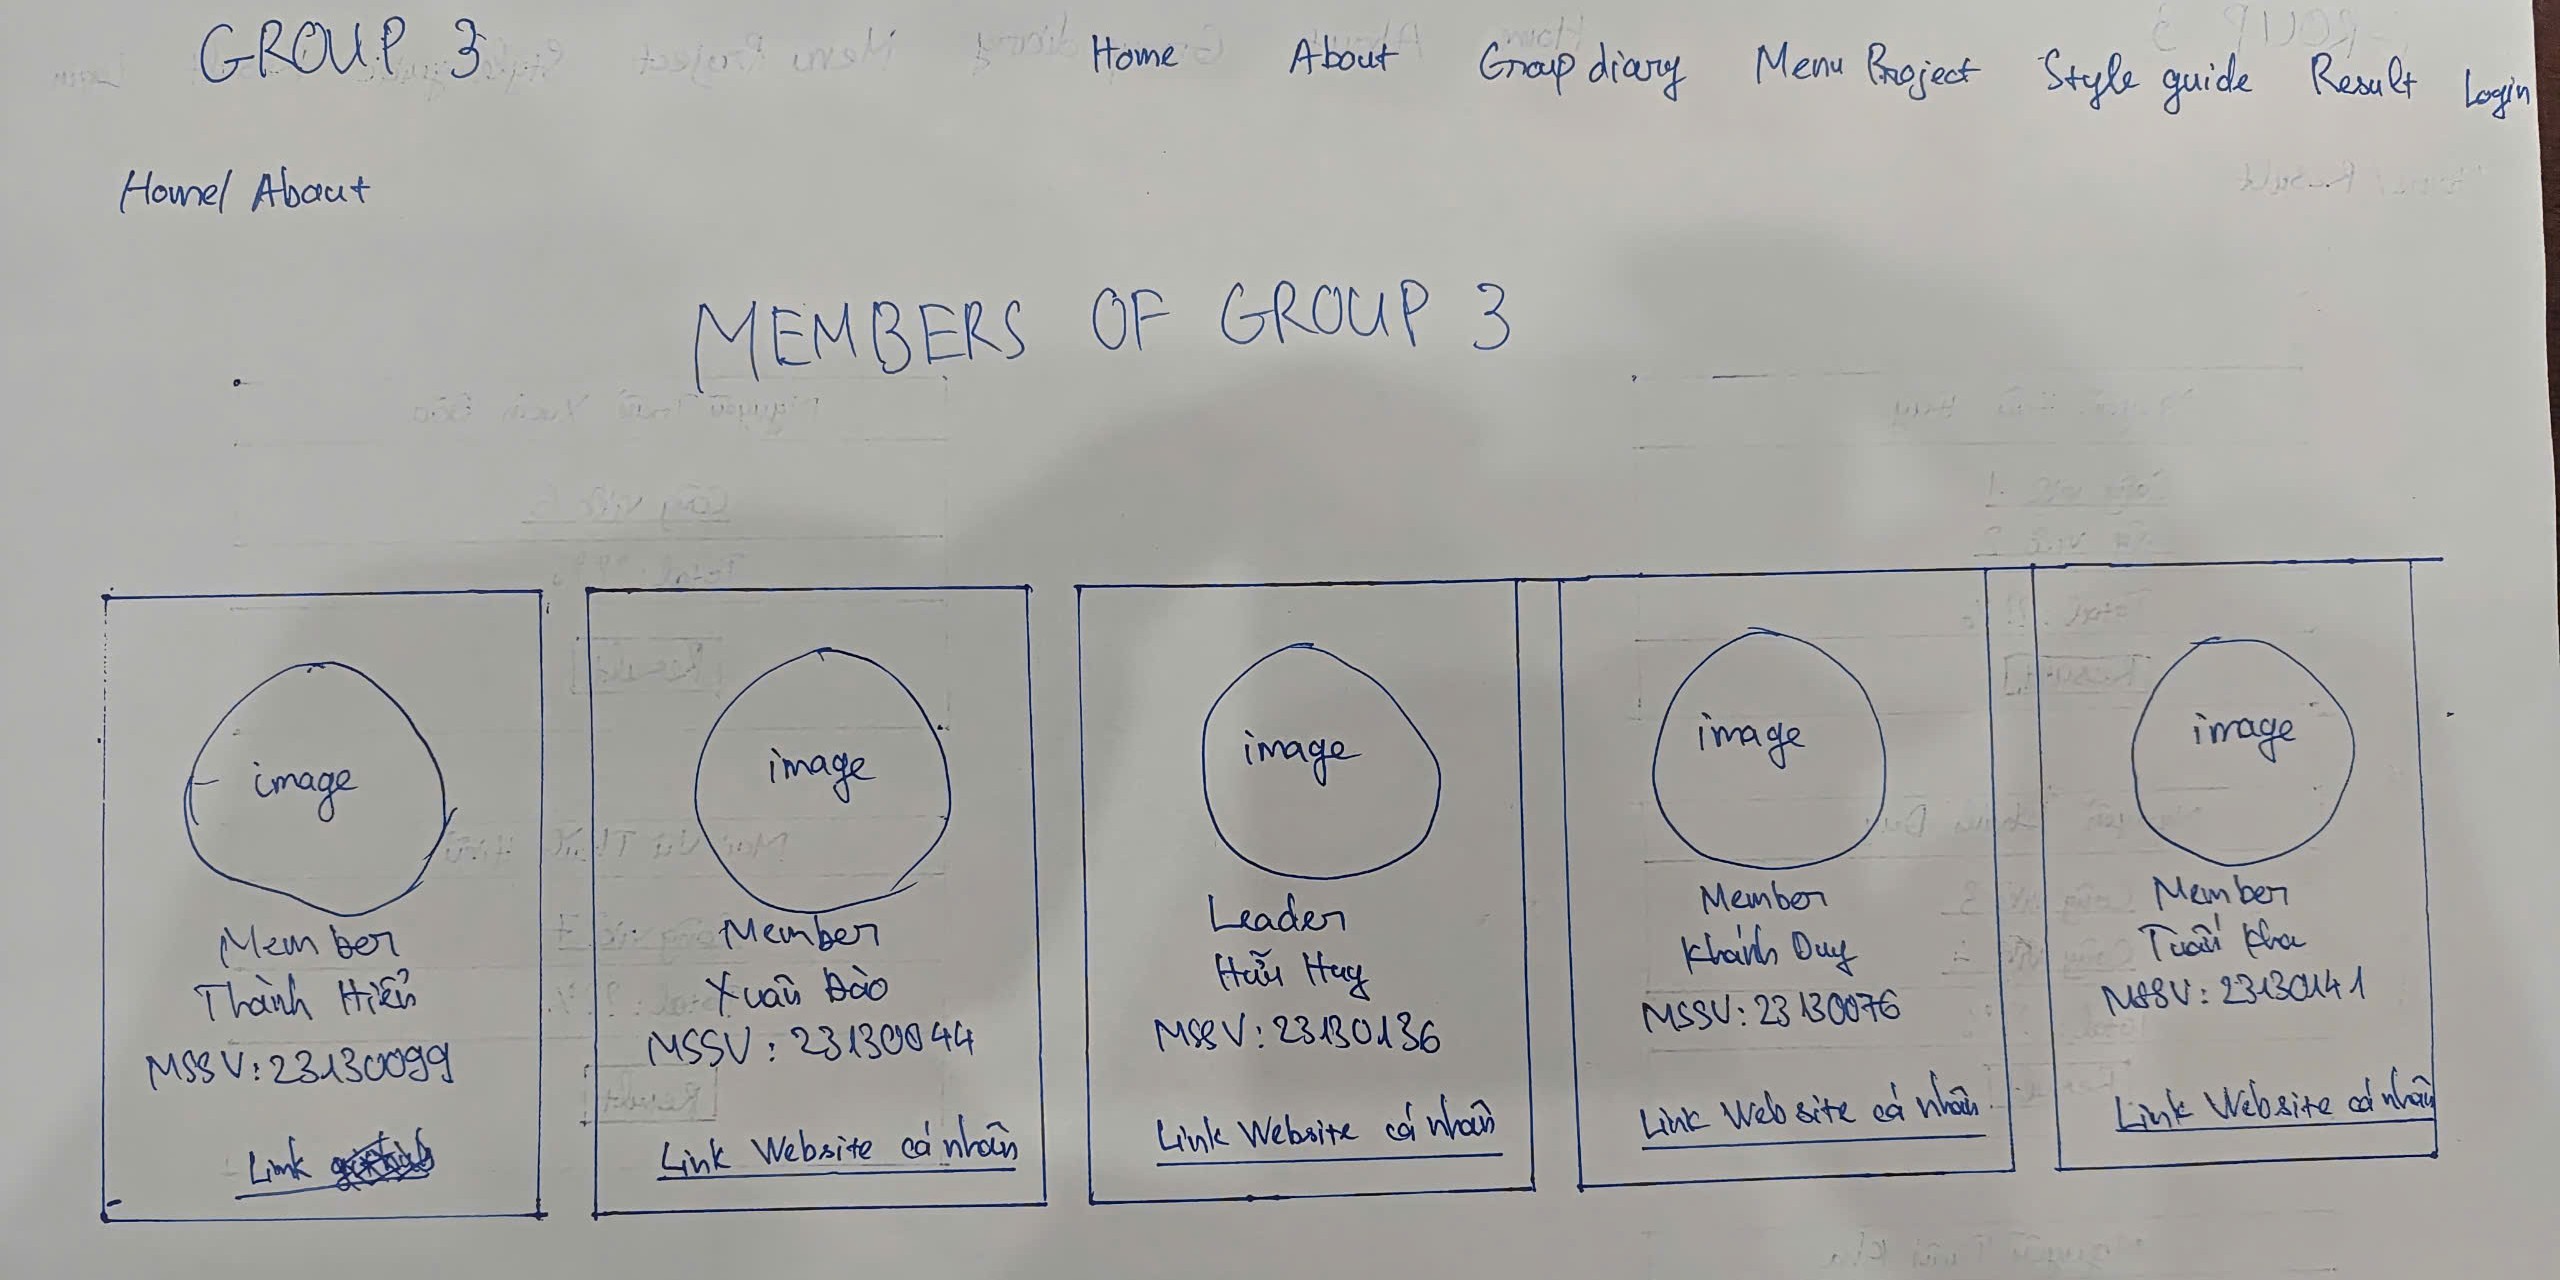 GROUP 3
Home About Group diary Menu Project Style guide Result Login
Home/ About
MEMBERS OF GROUP 3
image
Member
Thành Hiển
MSSV: 23130099
Link
image
Member
Xuân Đào
MSSV: 23130044
Link Website cá nhân
image
Leader
Hữu Huy
MSSV: 23130136
Link Website cá nhân
image
Member
Khánh Duy
MSSV: 23130076
Link Website cá nhân
image
Member
Tuấn Kha
MSSV: 23130141
Link Website cá nhân